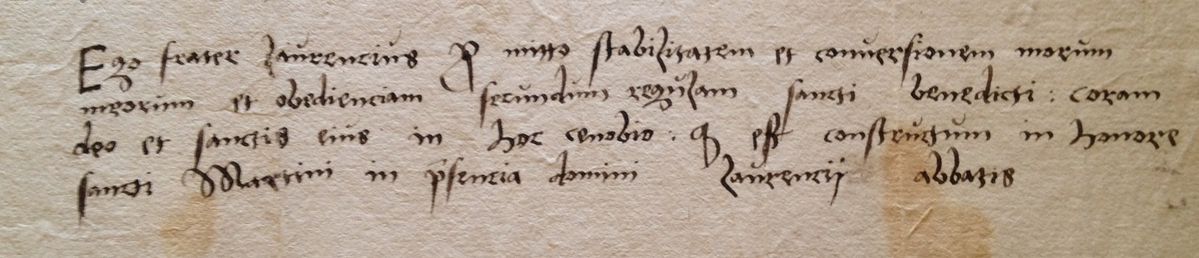 Ego frater laurencius ꝓ mitto stabilitatem et conuersionem morum
meorum et obedienciam secundum regulam sancti benedicti : coram
deo et sanctis eius in hoc cenobio : ꝗ est constructum in honore
sancti Martini in p̄sencia domini laurencij abbatis